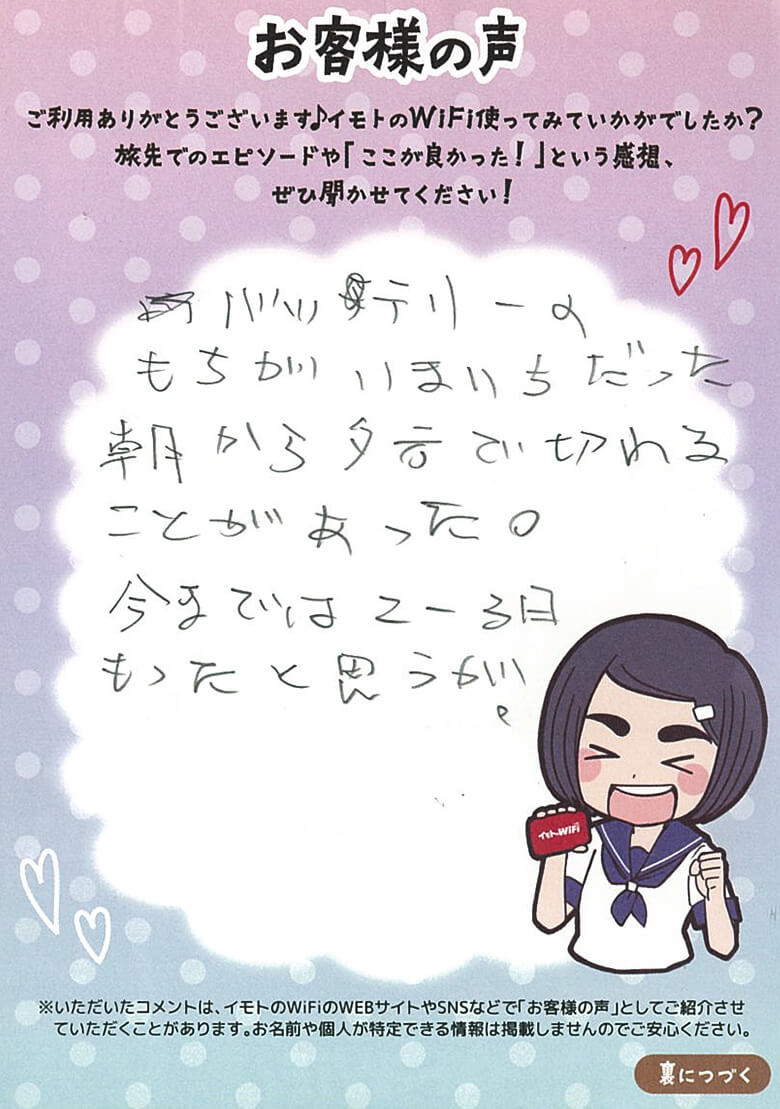 お客様の声
ご利用ありがとうございます♪イモトのWiFi使ってみていかがでしたか?
旅先でのエピソードや「ここが良かった!」という感想、
ぜひ聞かせてください!
バッテリーの
もちがいまいちだった
朝から夕方で切れる
ことがあった。
今までは2ー3日
もったと思うが。
イモトのWiFi
※いただいたコメントは、イモトのWiFiのWEBサイトやSNSなどで「お客様の声」としてご紹介させ
ていただくことがあります。お名前や個人が特定できる情報は掲載しませんのでご安心ください。
裏につづく